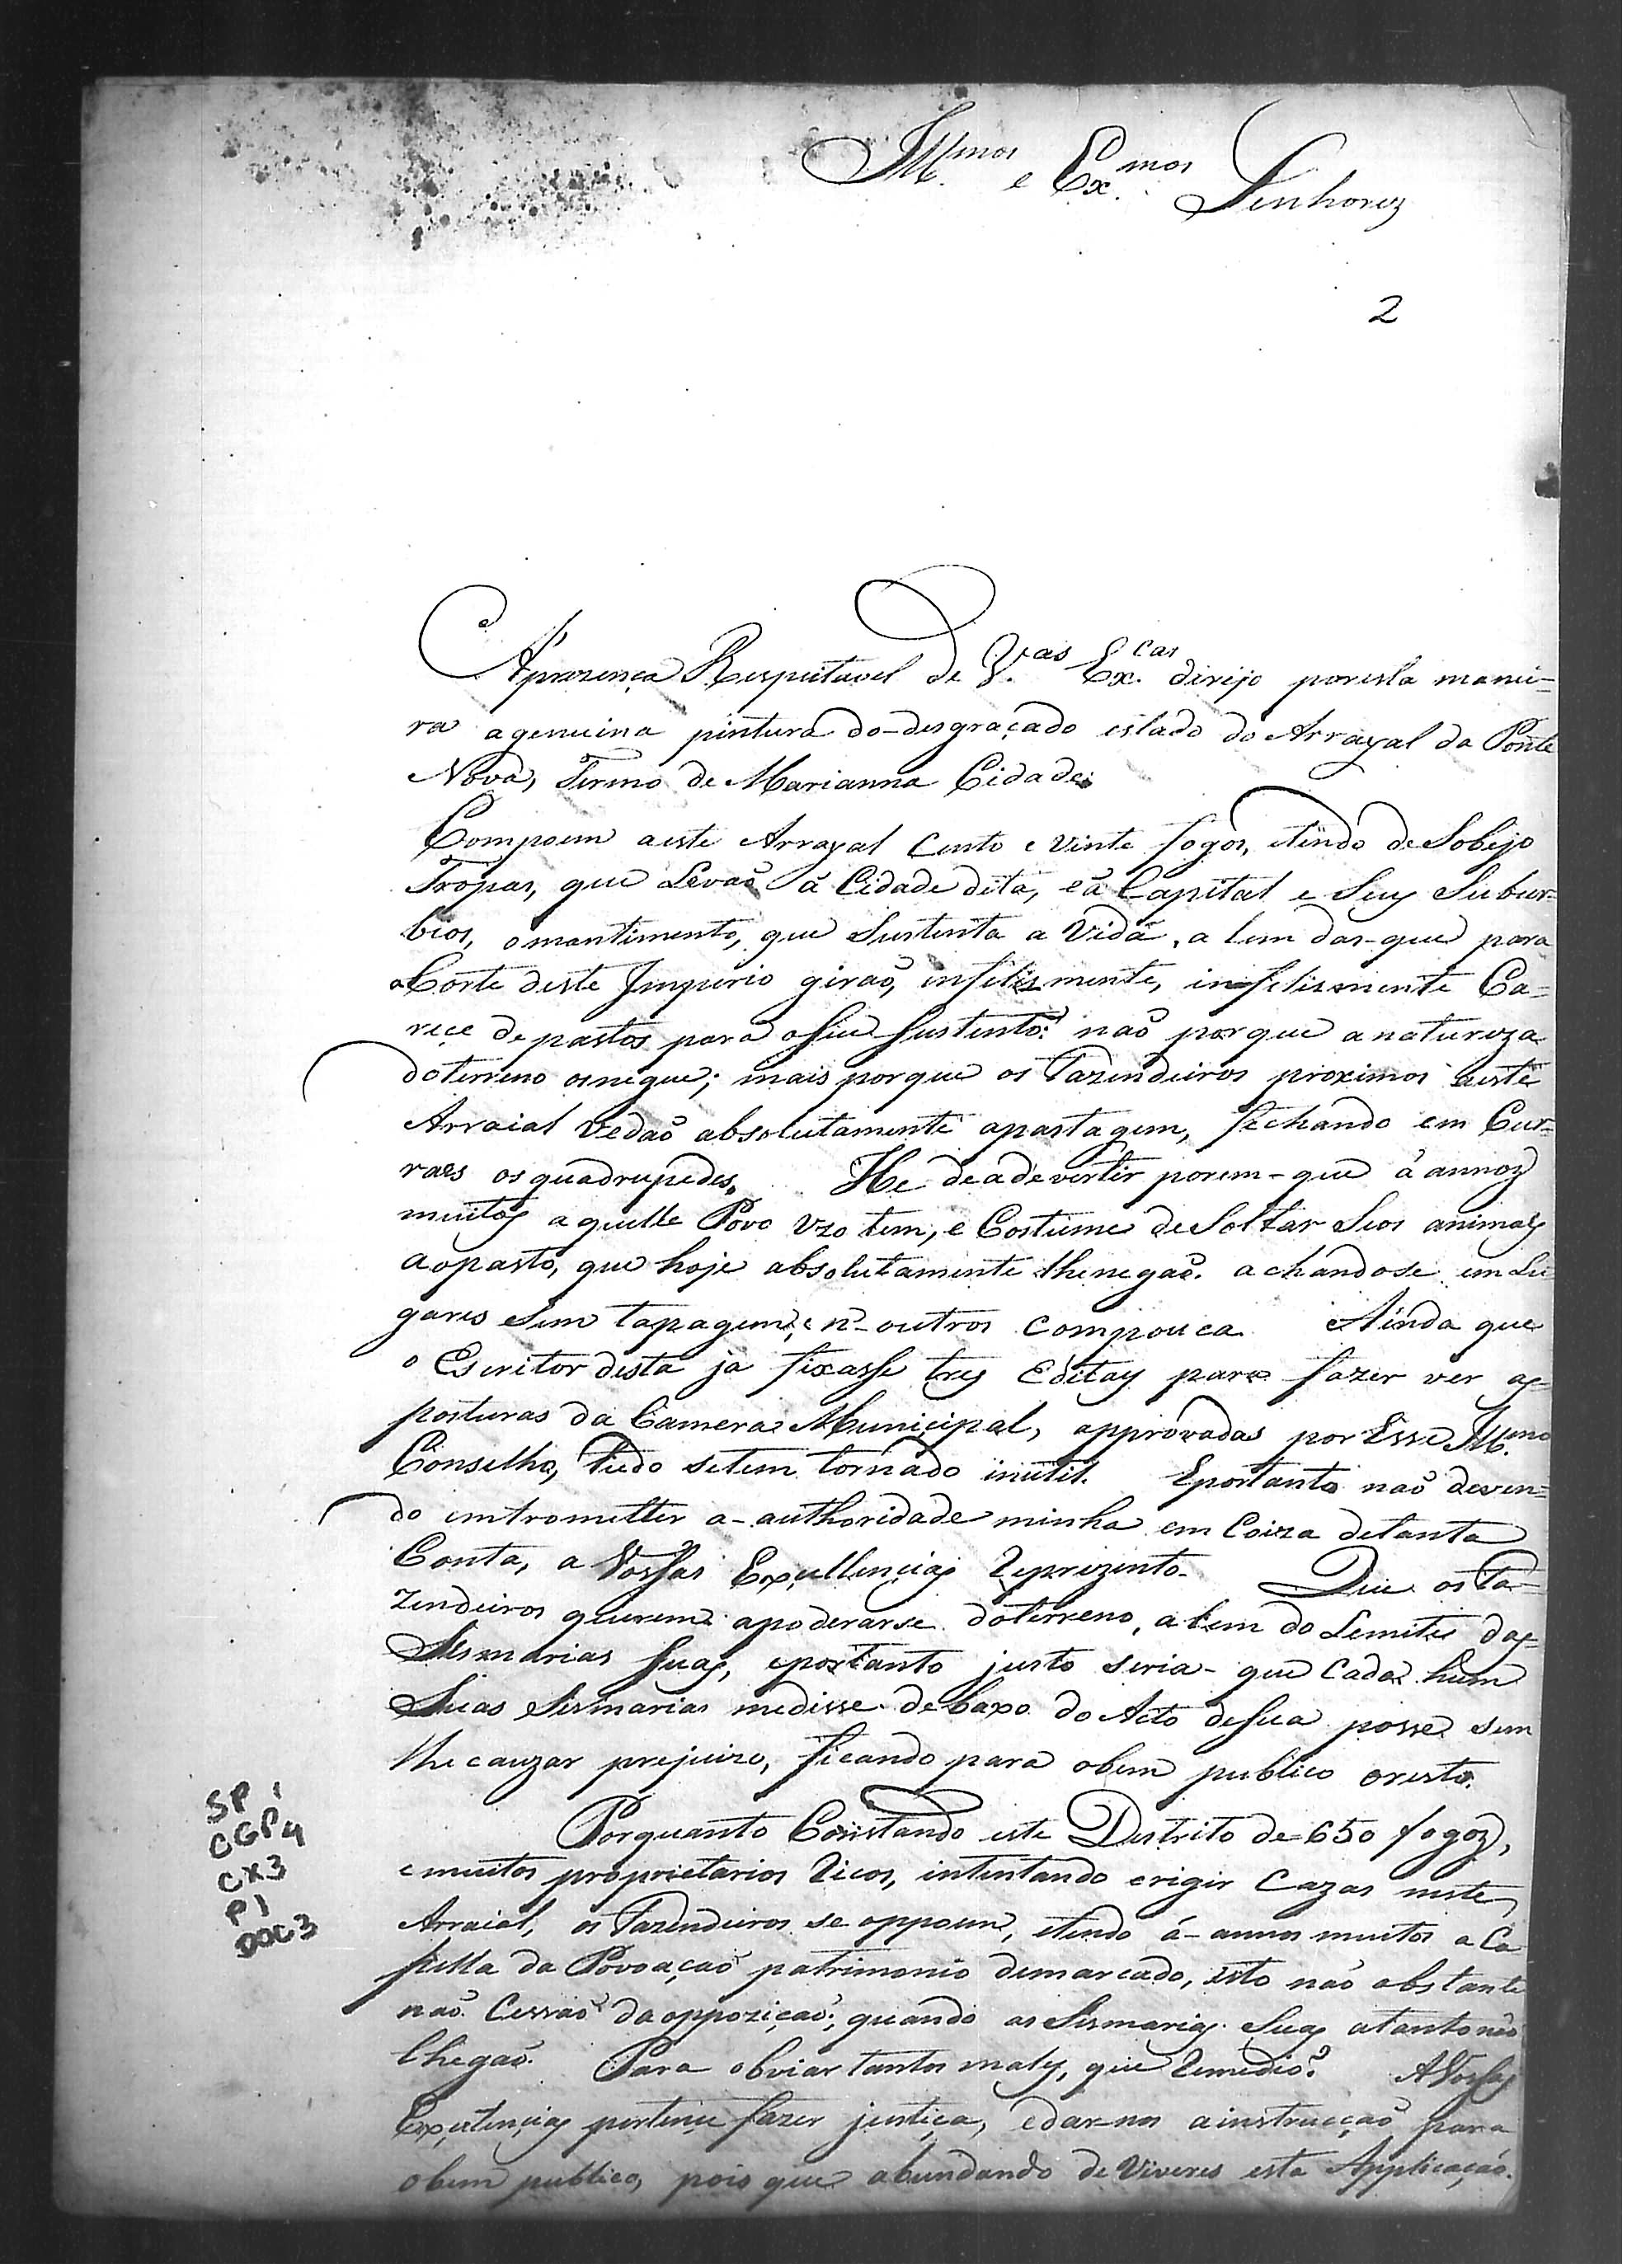 Ill.mos e Ex.mos Senhores
2
Aprezença Respeitavel de V.as Ex.cas dirijo poresta manei=
ra agenuina pintura do-desgraçado estado do Arrayal da Ponte
Nova, Termo de Marianna Cidade.
Compoem aeste Arrayal Cento e Vinte fogos, etendo de Sobejo
Tropas, que Levaõ á Cidade dita, eá Capital e Seus Subur=
bios, omantimento, que Sustenta a Vida, a lem das-que para
a Corte deste Imperio giraõ, infelizmente, infelismente Ca=
rece de pastos para oseu sustento: naõ porque anatureza
doterreno osnegue; mais porque os Fazendeiros proximos aeste
Arraial Vedaõ absolutamente apastagem, fechando em Cur=
raes osquadrupedes. He deadevertir porem-que á annos
muitos aquelle Povo Vzo tem, e Costume deSoltar Seos animais
aopasto, que hoje absolutamente lhenegaõ. achandose em Lu
gares Sem tapagem, e n'-outros compouca. Ainda que
o Escritor desta ja fixasse tres Editais para fazer ver as
posturas da Camera Municipal, approvadas por Esse Ill.mo
Conselho, tudo setem tornado inutil. Eportanto naõ deven=
do emtrometter a-authoridade minha em Coiza detanta
Conta, a Vossas Excellencias Reprezento. Que os Fa=
zendeiros querem apoderarse doterreno, alem do Lemite das
Sesmarias suas, eportanto justo seria-que Cada hum
Suas Sismarias medisse debaxo do Acto desua posse sem
lhe cauzar prejuizo, ficando para obem publico oresto.
Porquanto Constando este Destrito de 650 fogos,
emuitos proprietarios Ricos, intentando erigir Cazas neste
Arraial, os Fazendeiros se oppoem, etendo á-annos muitos a Ca
pella da Povoaçaõ patrimonio demarcado, isto naõ obstante
naõ Cessaõ daoppoziçaõ; quando as Sismarias Suas atanto naõ
Chegaõ. Para obviar tantos males, que Remedio? AVossas
Excelencias pertence fazer justiça, edar-nos ainstrucçaõ para
obem publico, pois que abundando de Viveres esta Applicaçaõ.
SP 1
CGP4
CX3
P1
DOC3